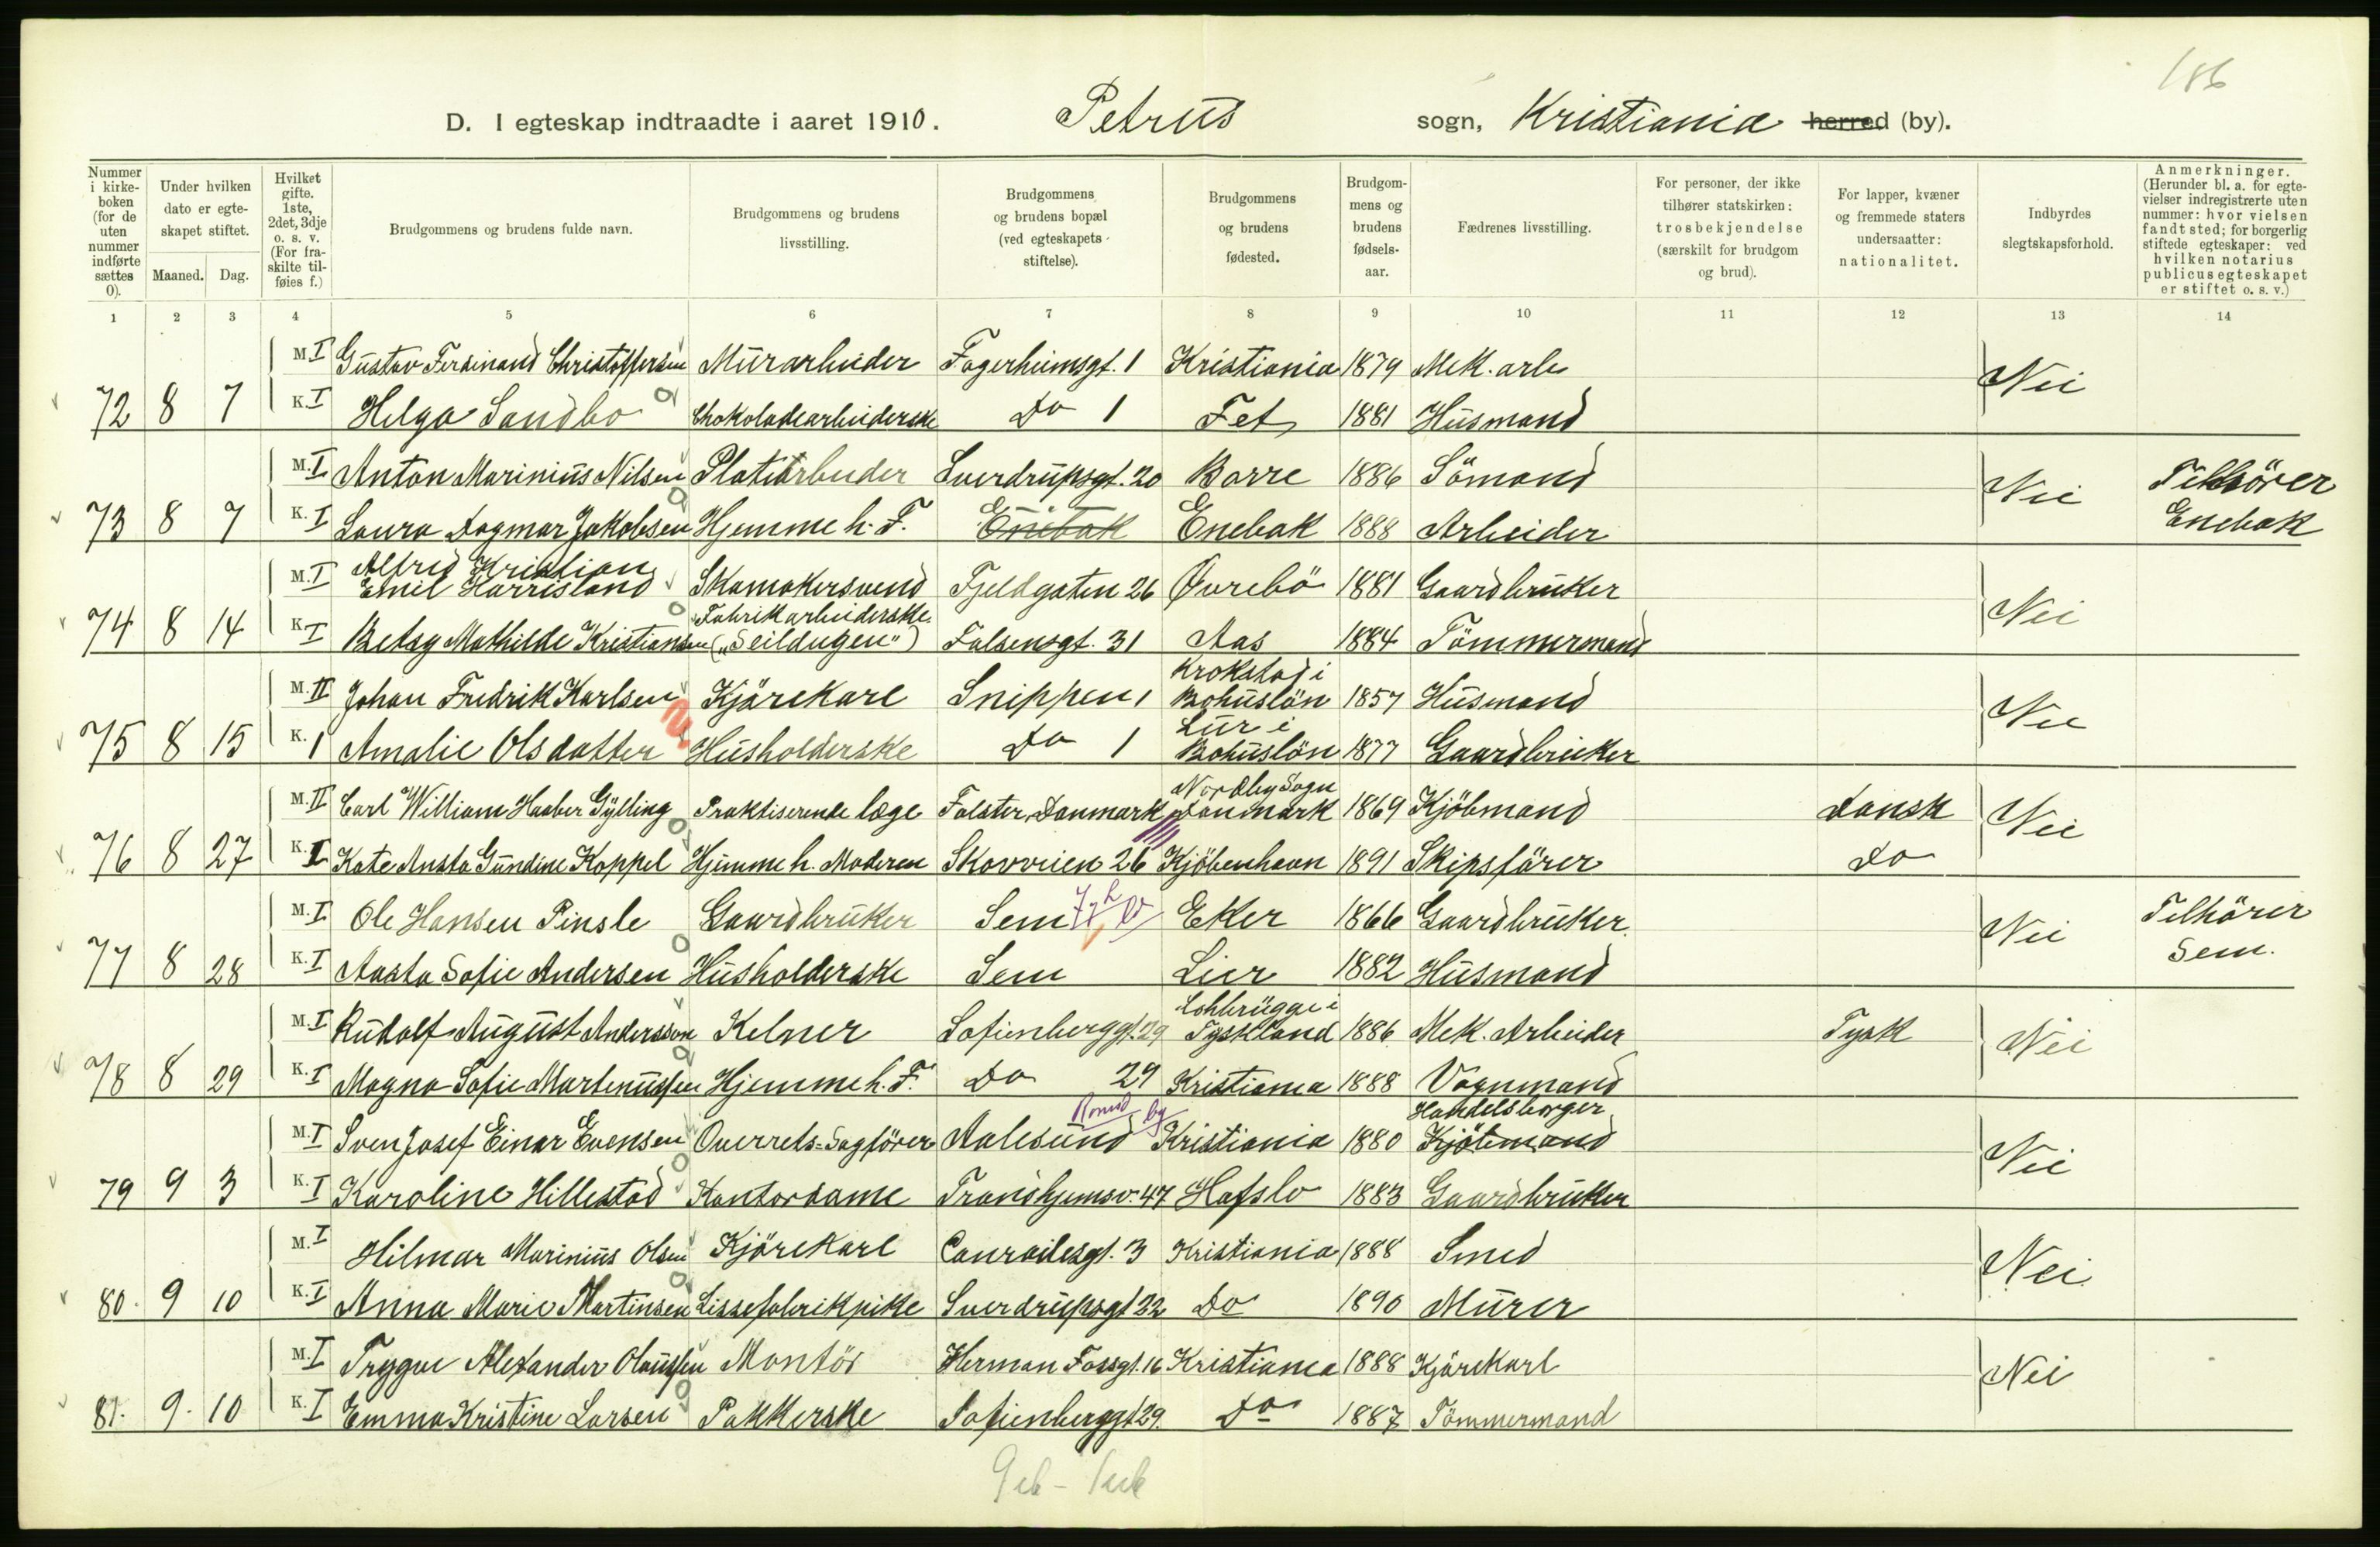 186
D. I egteskap indtraadte i aaret 1910. Petrus sogn, Kristiania herred (by).
Nummer i kirkeboken (for de uten nummer indførte sættes 0). Under hvilken dato er egteskapet stiftet. Maaned. Dag. Hvilket gifte. 1ste, 2det, 3dje o. s. v. (For fraskilte tilføies f.) Brudgommens og brudens fulde navn. Brudgommens og brudens livsstilling. Brudgommens og brudens bopæl (ved egteskapets stiftelse). Brudgommens og brudens fødested. Brudgommens og brudens fødselsaar. Fædrenes livsstilling. For personer, der ikke tilhører statskirken: trosbekjendelse (særskilt for brudgom og brud). For lapper, kvæner og fremmede staters undersaatter: nationalitet. Indbyrdes slegtskapsforhold. Anmerkninger. (Herunder bl. a. for egtevielser indregistrerte uten nummer: hvor vielsen fandt sted; for borgerlig stiftede egteskaper: ved hvilken notarius publicus egteskapet er stiftet o. s. v.)
1 2 3 4 5 6 7 8 9 10 11 12 13 14
M. I Gustav Ferdinand Christoffersen Murarbeider Fagerheimsgt. 1 Kristiania 1879 Mek. arb
72 8 7 K. I Helga Sandbo Chokoladearbeiderske Do 1 Fet 1881 Husmand Nei
M. I Anton Marinius Nilsen Platearbeider Sverdrupsgt. 20 Borre 1886 Sömand Tilhörer
73 8 7 K. I Laura Dagmar Jakobsen Hjemme h. F. Enebak Enebak 1888 Arbeider Nei Enebak
Alfred Kristian
M. I Emil Harrisland Skomakersvend Fjeldgaten 26 Øvrebö 1881 Gaardbruker
Fabrikarbeiderske
74 8 14 K. I Betsy Mathilde Kristiansen ("Seildugen") Falsensgt. 31 Aas 1884 Tömmermand Nei
Krokstad i
M. II Johan Fredrik Karlsen Kjörekarl Snippen 1 Bohuslän 1857 Husmand
Lur i
75 8 15 K. 1 Amalie Olsdatter Husholderske Do 1 Bohuslän 1877 Gaardbruker Nei
Nordby Sogn
M. II Carl William Haaber Gylling Praktiserende læge Falster, Danmark Danmark 1869 Kjöbmand Dansk
76 8 27 K. I Kate Ansta Gundine Koppel Hjemme h. Moderen Skovveien 26 Kjöbenhavn 1891 Skipsförer Do Nei
M. I Ole Hansen Pinsle Gaardbruker Sem Eker 1866 Gaardbruker. Tilhörer
77 8 28 K. I Aasta Sofie Andersen Husholderske Sem Lier 1882 Husmand Nei Sem.
Lohbrügge i
M. I Rudolf August Andersson Kelner Sofienberggt. 29 Tyskland 1886 Mek. Arbeider Tysk
78 8 29 K. I Magna Sofie Martinussen Hjemme h. F. Do 29 Kristiania 1888 Vognmand Nei
Handelsborger
M. I Sven Josef Einar Evensen Overrets-Sagförer Aalesund Kristiania 1880 Kjöbmand
79 9 3 K. I Karoline Hillestad Kontordame Trondhjemsv. 47 Hafslo 1883 Gaardbruker Nei
M. I Hilmar Marinius Olsen Kjörekarl Conradisgt. 3 Kristiania 1888 Smed
80. 9 10 K. I Anna Marie Martinsen Lissefabrikpike Sverdrupsgt 22 Do 1890 Murer Nei
M. I Trygve Alexander Olaussen Montör Herman Fossgt. 16 Kristiania 1888 Kjörekarl
81. 9. 10 K. I Emma Kristine Larsen Pakkerske Sofienberggt 29. Do 1887 Tömmermand Nei